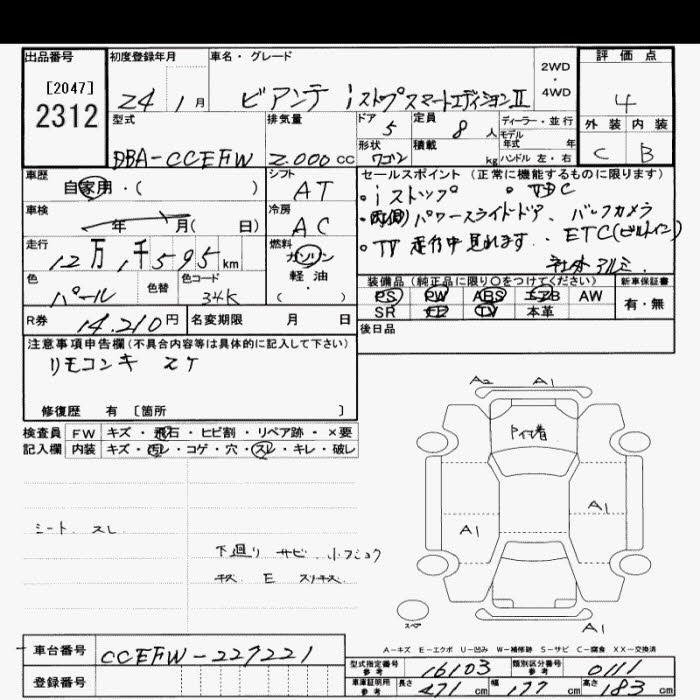 出品番号 初度登録年月 車名・グレード 2WD・4WD 評価点
[2047]
2312
24 1月 ビアンテ iストップスマートエディションⅡ 4
型式 排気量 ドア 5 定員 8人 ディーラー・並行 外装 内装
モデル年式 年
DBA-CCEFW 2.000cc 形状 ワゴン 積載 kg ハンドル 左・右 C B
車歴 シフト セールスポイント (正常に機能するものに限ります)
自家用・( ) AT ・iストップ
車検 冷房 ・両側パワースライドドア、バックカメラ
年 月( 日) AC ・TV走行中見れます、ETC(ビルトイン)
走行 燃料
12万1千595km ガソリン
色 色替 色コード 軽油 装備品(純正品に限り○をつけてください) 新車保証書
パール 34K ( ) PS PW ABS AW 有・無
R券 14.210円 名変期限 月 日 SR TV 本革
後日品
注意事項申告欄(不具合内容等は具体的に記入して下さい)
リモコンキー 2ケ
修復歴 有 〔箇所 〕
検査員 FW キズ・飛石・ヒビ割・リペア跡・×要
記入欄 内装 キズ・汚レ・コゲ・穴・スレ・キレ・破レ
A2 A1
A1
A1
シート スレ
下廻り サビ、小フショク
キズ E スリキズ
スペア
A1
A-キズ E-エクボ U-凹み W-補修跡 S-サビ C-腐食 XX-交換済
車台番号 CCEFW-227221
型式指定番号 参考 16103 類別区分番号 参考 0111
登録番号
車庫証明用 参考 長さ 471cm 幅 177cm 高さ 183cm